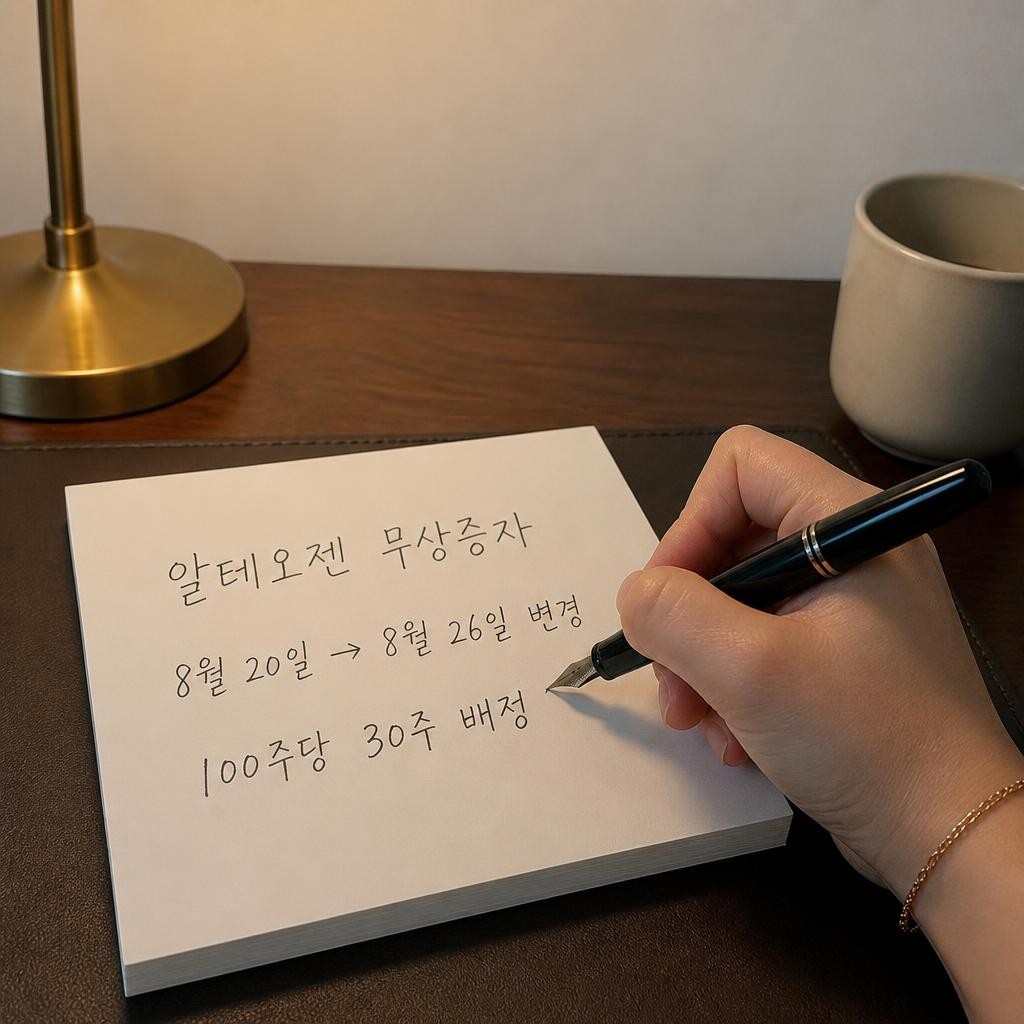 알테오젠 무상증자
8월 20일 → 8월 26일 변경
100주당 30주 배정